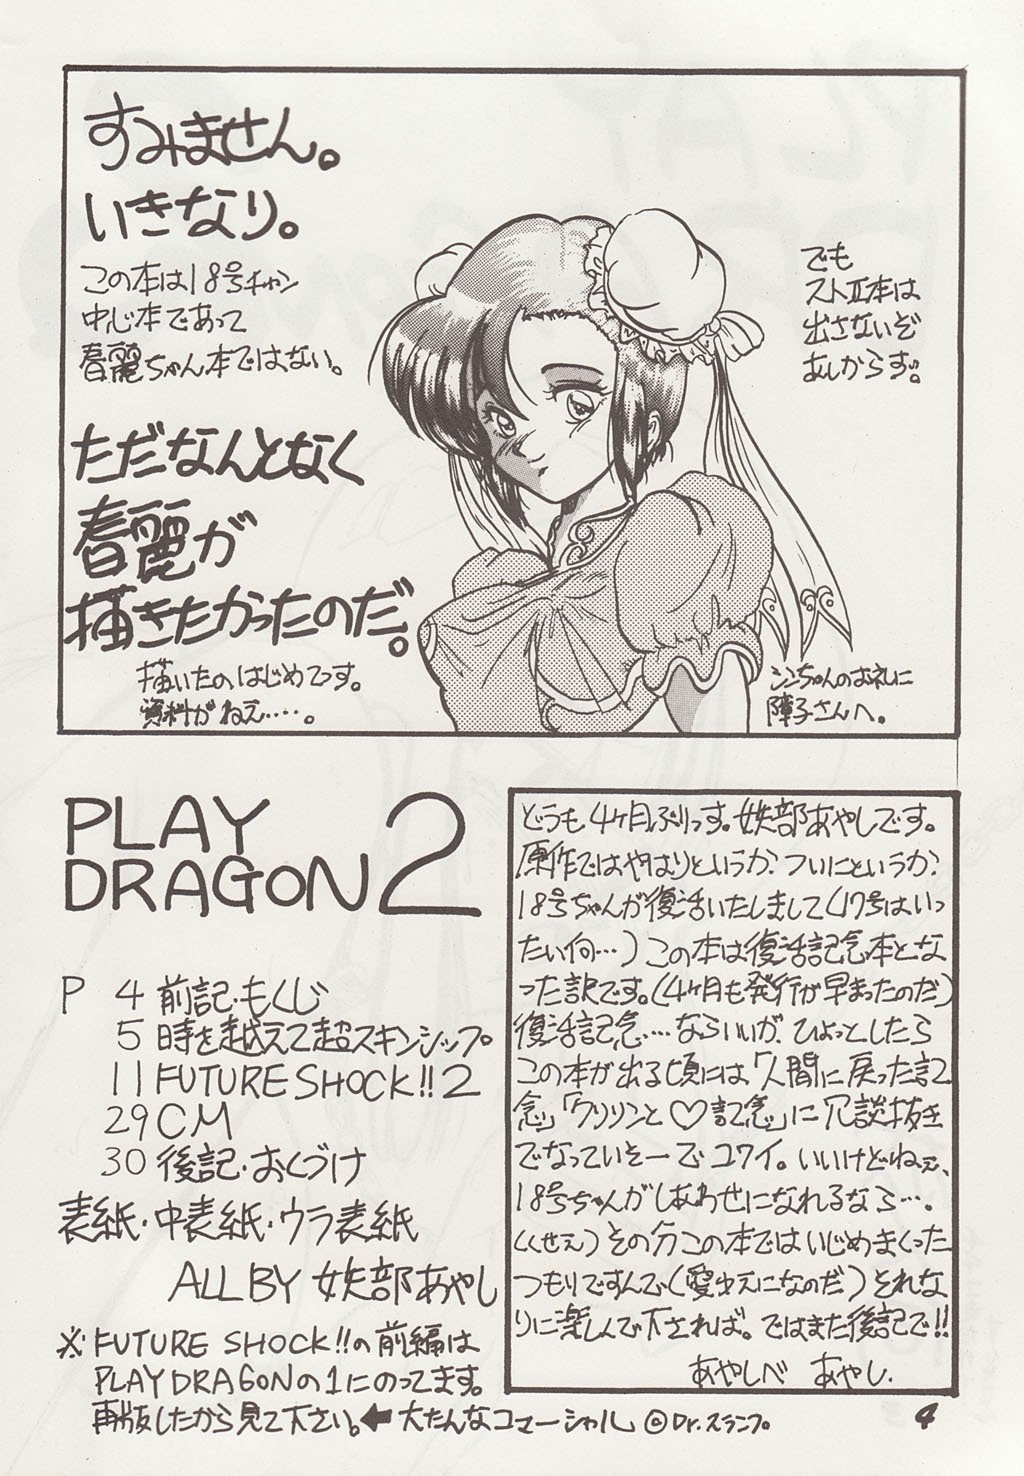 すみません。
いきなり。
この本は18号チャン
中心本であって
春麗ちゃん本ではない。
ただなんとなく
春麗が
描きたかったのだ。
描いたのはじめてっす。
資料がねえ‥‥。
でも
ストⅡ本は
出さないぞ
あしからず。
シンちゃんのお礼に
障子さんへ。
PLAY
DRAGON 2
P 4 前記・もくじ
5 時を越えて超スキンシップ。
11 FUTURE SHOCK!! 2
29 CM
30 後記・おくづけ
表紙・中表紙・ウラ表紙
ALL BY 妖部あやし
※ FUTURE SHOCK!!の前編は
PLAY DRAGONの1にのってます。
再版したから見て下さい。← 大たんなコマーシャル ©Dr.スランプ。
どうも4ヶ月ぶりっす。妖部あやしです。
原作ではやはりというか、ついにというか、
18号ちゃんが復活いたしまして(17号はいっ
たい何…)この本は復活記念本となっ
った訳です。(4ヶ月も発行が早まったのだ)
復活記念…ならいいが、ひょっとしたら
この本が出る頃には「人間に戻った記
念」「クリリンと♡記念」に冗談抜き
でなっていそーでコワイ。いいけどねぇ、
18号ちゃんがしあわせになれるなら…。
(くせえ)その分この本ではいじめまくった
つもりですんで(愛ゆえになのだ)それな
りに楽しんで下されば。ではまた後記で!!
あやしべ あやし.
4